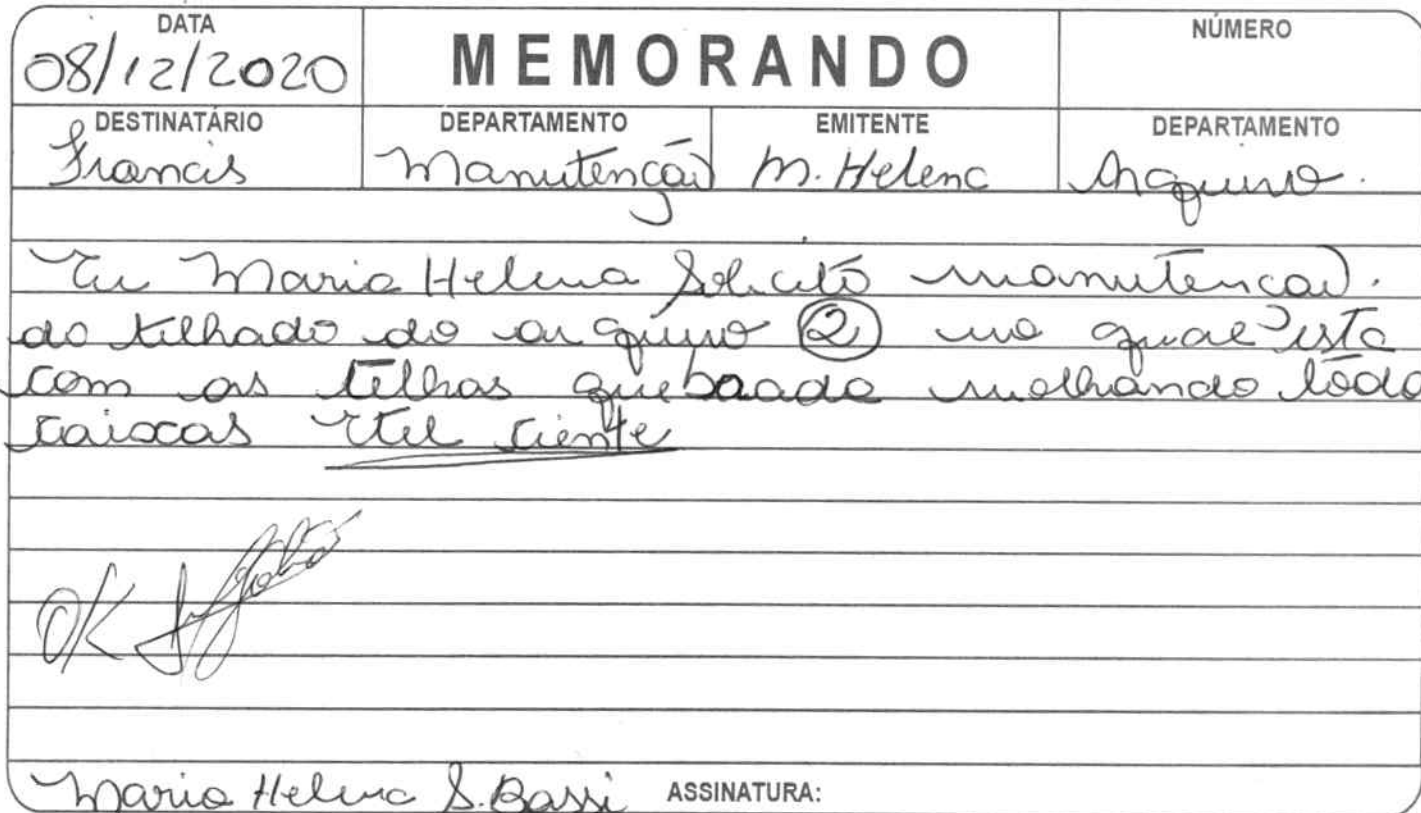 DATA
08/12/2020
MEMORANDO
NÚMERO
DESTINATÁRIO DEPARTAMENTO EMITENTE DEPARTAMENTO
Francis Manutenção M. Helena Arquivo.
Eu Maria Helena Solicito manutencão.
do telhado do arquivo 2 no qual esta
com as telhas quebrada molhando toda
caixas ciente
OK
Maria Helena S. Bassi ASSINATURA: